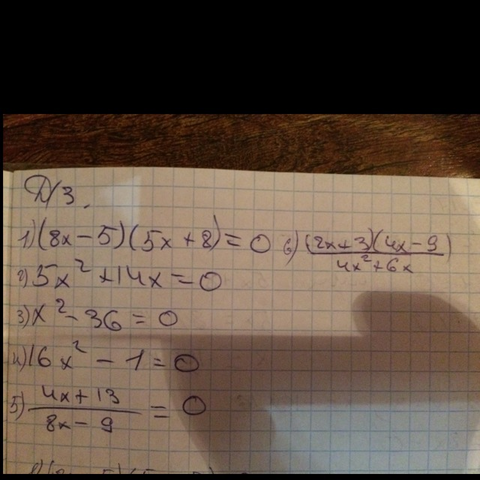 Д/З.
1) (8x-5)(5x+8)=0 6) (2x+3)(4x-9)/4x²+6x
2) 5x²+14x=0
3) x²-36=0
4) 16x²-1=0
5) 4x+13/8x-9=0